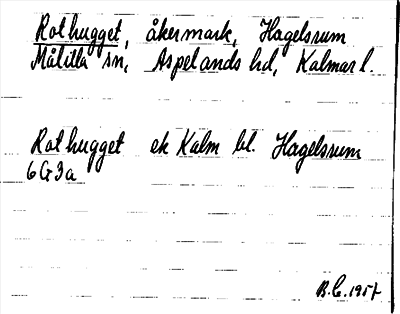 Rothugget, åkermark, Hagelsrum
Målilla sn, Aspelands hd, Kalmar l.
Rothugget ek Kalm bl. Hagelsrum
6G3a
B.E. 1957